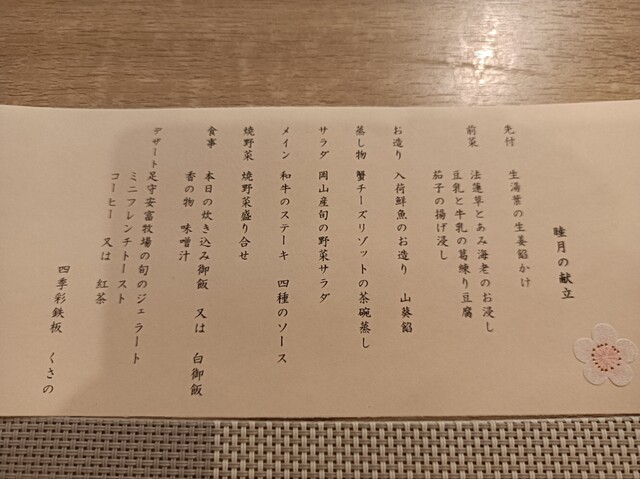 睦月の献立
先付　生湯葉の生姜餡かけ
前菜　法蓮草とあみ海老のお浸し
豆乳と牛乳の葛練り豆腐
茄子の揚げ浸し
お造り　入荷鮮魚のお造り　山葵餡
蒸し物　蟹チーズリゾットの茶碗蒸し
サラダ　岡山産旬の野菜サラダ
メイン　和牛のステーキ　四種のソース
焼野菜　焼野菜盛り合せ
食事　本日の炊き込み御飯　又は　白御飯
香の物　味噌汁
デザート　足守安富牧場の旬のジェラート
ミニフレンチトースト
コーヒー　又は　紅茶
四季彩鉄板　くさの